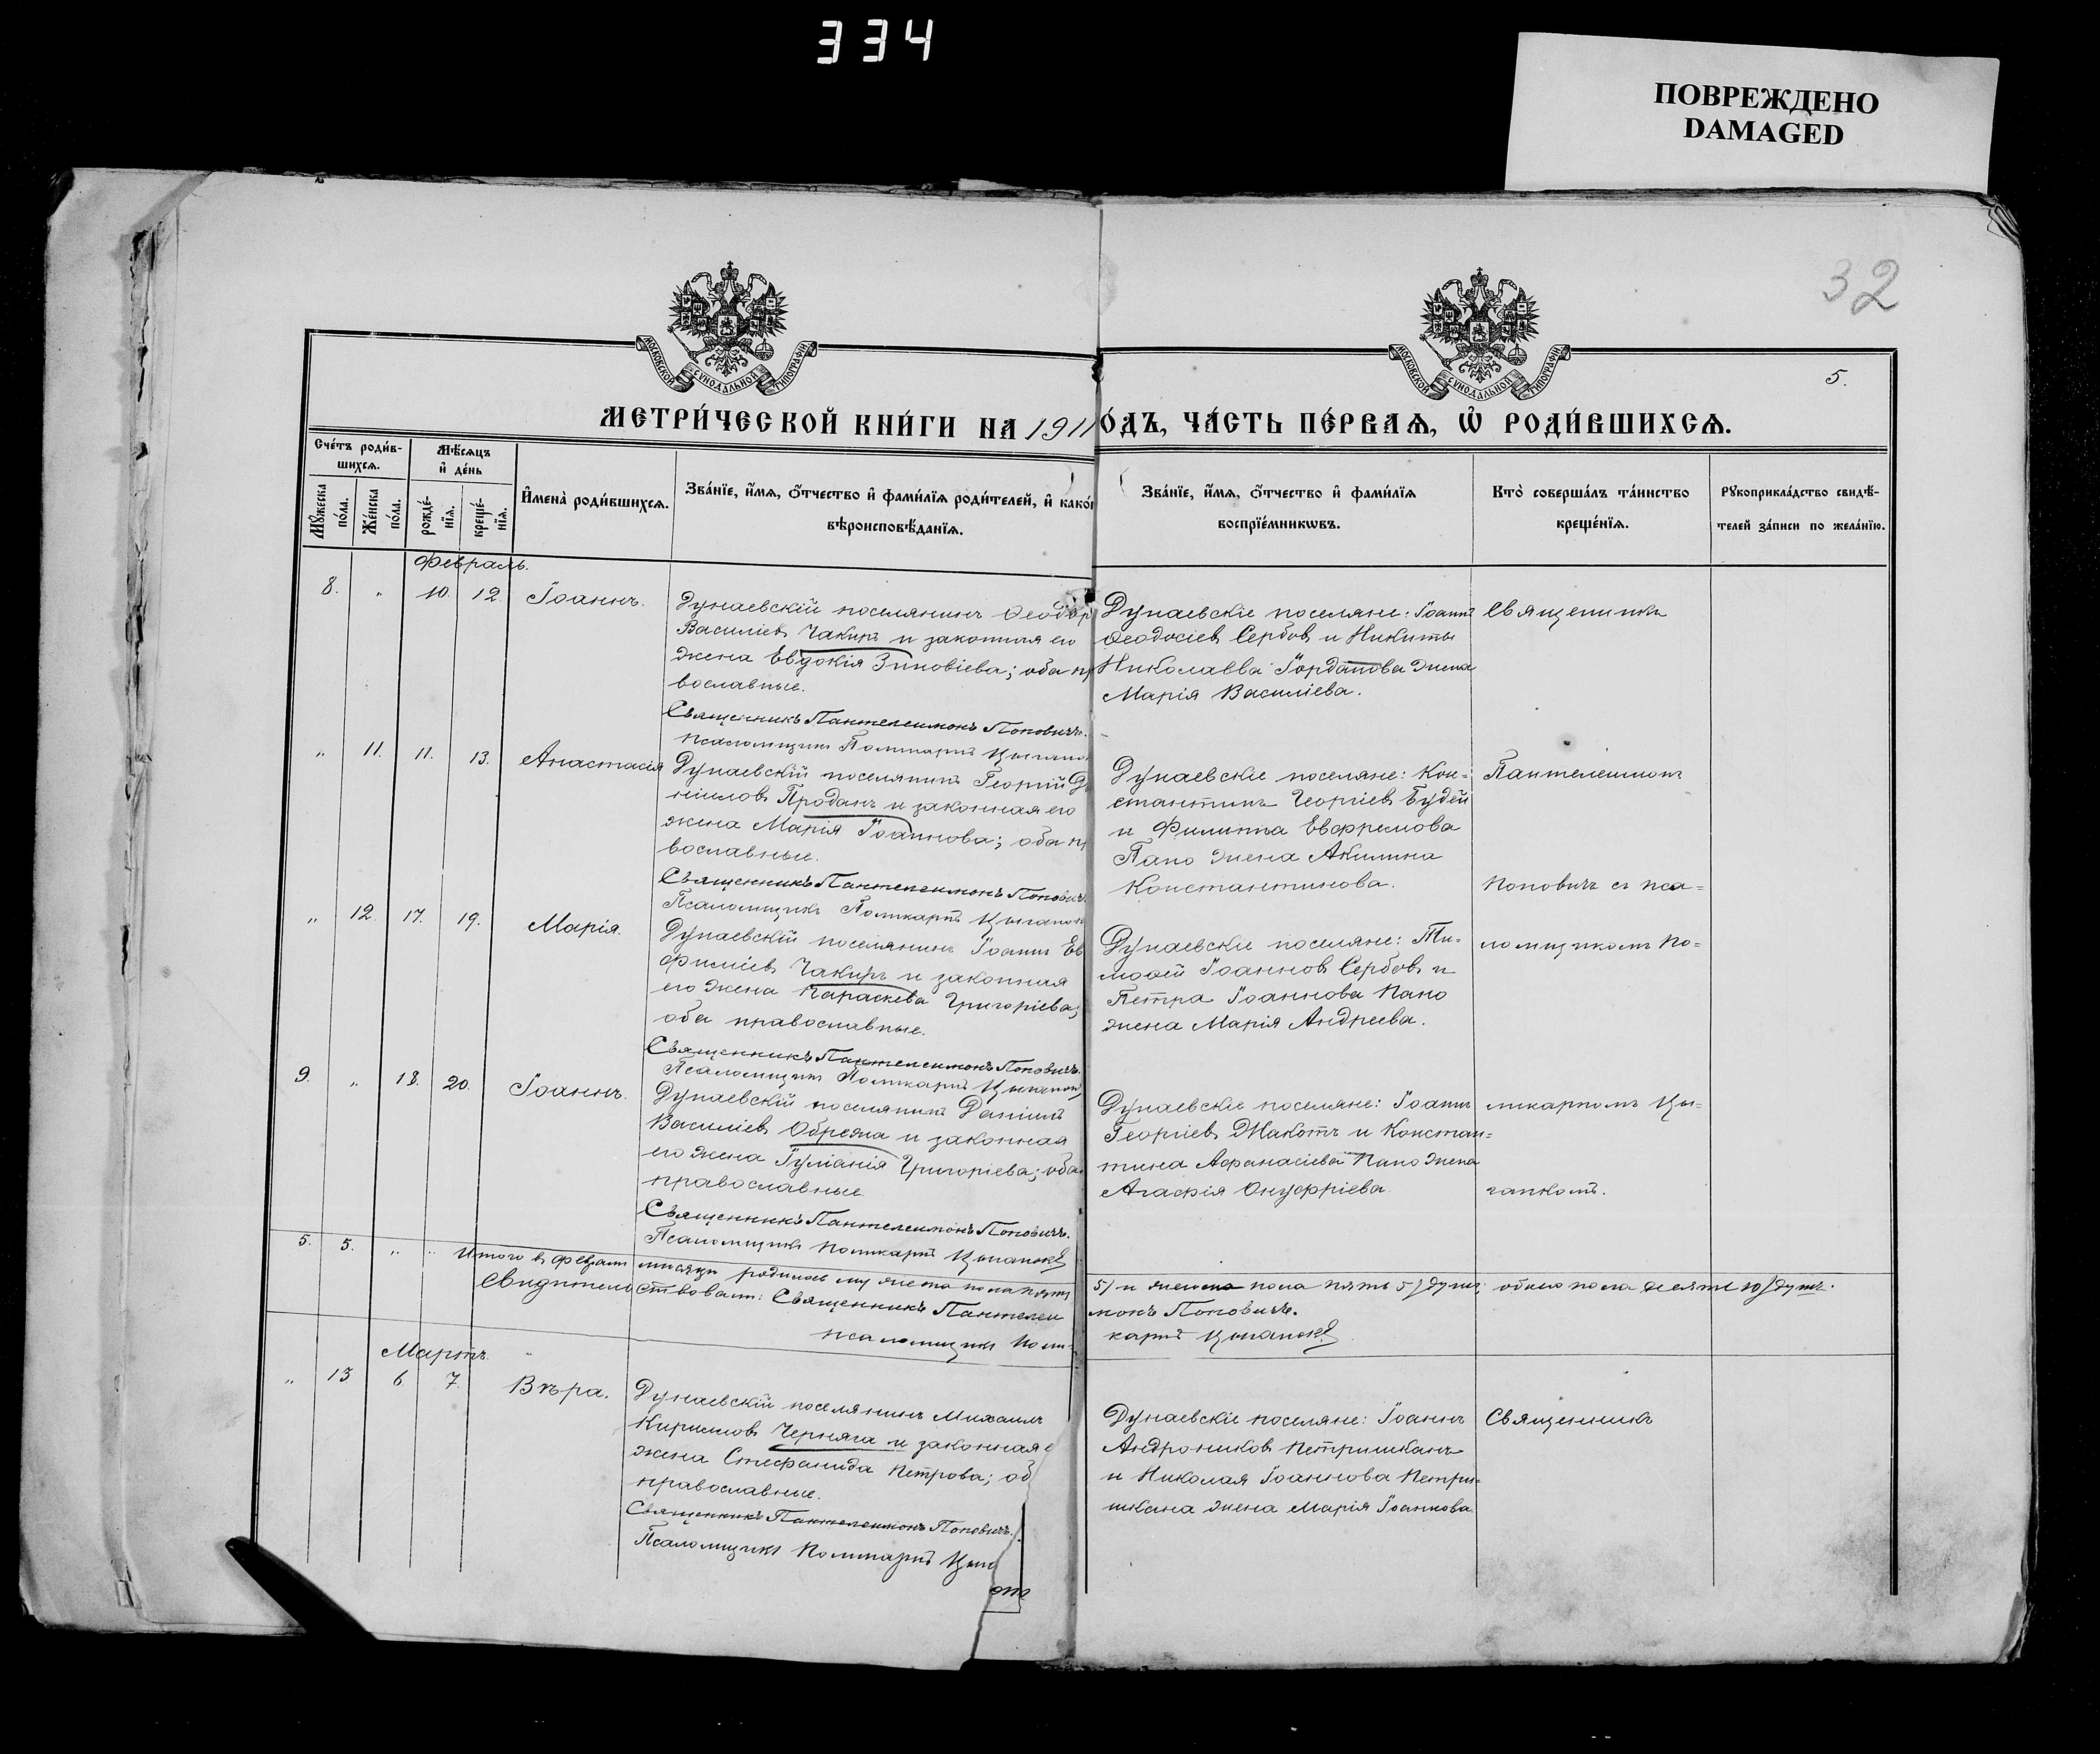 334
ПОВРЕЖДЕНО
DAMAGED
32
МОСКОВСКОЙ СУНОДАЛЬНОЙ ТИПОГРАФІИ
МОСКОВСКОЙ СУНОДАЛЬНОЙ ТИПОГРАФІИ
5.
МЕТРИ́ЧЕСКОЙ КНИ́ГИ НА 1911
О́ДЪ, ЧА́СТЬ ПЕ́РВАѦ, Ѡ҆ РОДИ́ВШИХСѦ.
Сче́тъ роди́в-
шихсѧ.
Мѣ́сѧцъ
и҆ де́нь
Мꙋ́жеска
по́ла.
Же́нска
по́ла.
рожде́-
нїѧ.
креще́-
нїѧ.
И҆мена̀ роди́вшихсѧ.
Зва́нїе, и҆́мѧ, ѻ҆́тчество и҆ фами́лїѧ роди́телей, и҆ како́
вѣроисповѣ́данїѧ.
Зва́нїе, и҆́мѧ, ѻ҆́тчество и҆ фами́лїѧ
воспрїе́мникѡвъ.
Кто̀ соверша́лъ та́инство
креще́нїѧ.
Рꙋкоприкла́дство свидѣ́-
телей за́писи по жела́нїю.
Февраль.
8. " 10. 12. Іоаннъ.
Дунаевскій поселянинъ Ѳеодор
Василіевъ Чакиръ и законная его
жена Евдокія Зиновіева; оба пр
вославные.
Священникъ Пантелеимонъ Поповичъ.
Псаломщикъ Поликарпъ Цыганок
Дунаевскіе поселяне: Іоаннъ
Ѳеодосіевъ Сербовъ и Никиты
Николаева Іорданова жена
Марія Василіева.
Священникъ
" 11. 11. 13. Анастасія
Дунаевскій поселянинъ Георгій Да
ніиловъ Проданъ и законная его
жена Марія Іоаннова; оба пр
вославные.
Священникъ Пантелеимонъ Поповичъ
Псаломщикъ Поликарпъ Цыганок
Дунаевскіе поселяне: Кон-
стантинъ Георгіевъ Будей
и Филиппа Евфремова
Папо жена Акилина
Константинова.
Пантелеимонъ
Поповичъ съ пса-
" 12. 17. 19. Марія.
Дунаевскій поселянинъ Іоаннъ Ев
фиміевъ Чакиръ и законная
его жена Параскева Григоріева;
оба православные.
Священникъ Пантелеимонъ Поповичъ.
Псаломщикъ Поликарпъ Цыганок
Дунаевскіе поселяне: Ти-
моѳей Іоанновъ Сербовъ и
Петра Іоаннова Папо
жена Марія Андреева.
ломщикомъ По-
9. " 18. 20. Іоаннъ.
Дунаевскій поселянинъ Даніилъ
Василіевъ Обрежа и законная
его жена Іуліанія Григоріева; оба
православные.
Священникъ Пантелеимонъ Поповичъ.
Псаломщикъ Поликарпъ Цыганокъ
Дунаевскіе поселяне: Іоаннъ
Георгіевъ Жакотъ и Констан-
тина Аѳанасіева Папо жена
Агафія Онуфріева.
ликарпомъ Цы-
ганкомъ.
5. 5. " " Итого въ февралѣ мѣсяцѣ родилось муж ескa пола пять
5) и женска пола пять 5) душъ; обоего пола десять 10) душъ.
Свидѣтельствовали: Священникъ Пантелеи
монъ Поповичъ.
псаломщикъ Поли-
карпъ Цыганокъ
Мартъ.
" 13 6 7. Вѣра.
Дунаевскій поселянинъ Михаилъ
Кирилловъ Черняга и законная е
жена Стефанида Петрова; об
православные.
Священникъ Пантелеимонъ Поповичъ.
Псаломщикъ Поликарпъ Цыга
Дунаевскіе поселяне: Іоаннъ
Андрониковъ Петришканъ
и Николая Іоаннова Петри-
шкана жена Марія Іоаннова.
Священникъ